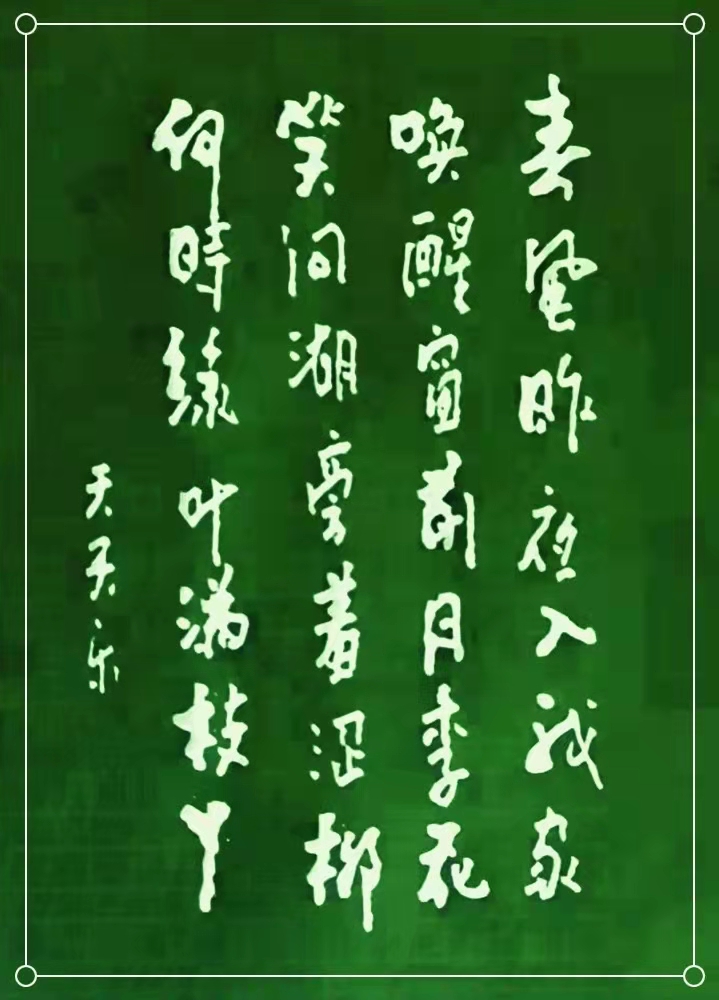 春風昨夜入我家
喚醒窗前月季花
笑问湖旁羞涩柳
何時绿叶满枝丫
天天乐